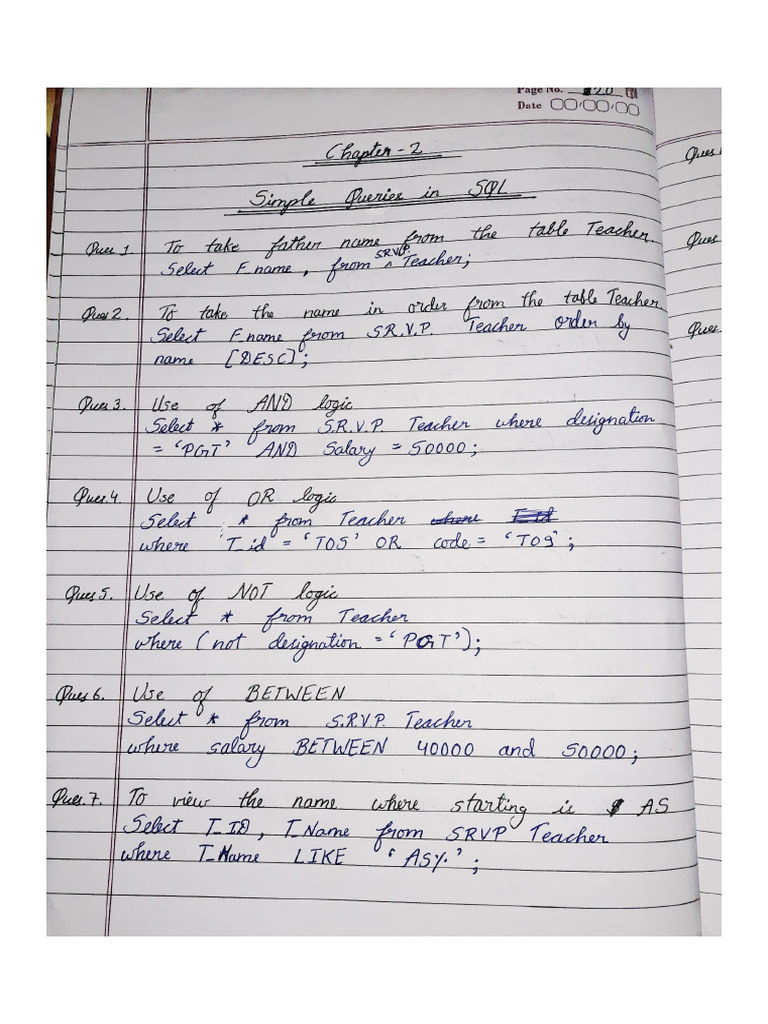 Page No. 20
Date
Chapter - 2
Simple Queries in SQL
Ques 1. To take father name from the table Teacher.
Select F_name, from SRVP. Teacher;
Ques 2. To take the name in order from the table Teacher
Select F_name from S.R.V.P. Teacher order by
name [DESC];
Ques 3. Use of AND logic
Select * from S.R.V.P. Teacher where designation
= 'PGT' AND Salary = 50000;
Ques.4. Use of OR logic
Select * from Teacher where T_id
where T_id = 'T05' OR code = 'T09';
Ques 5. Use of NOT logic
Select * from Teacher
where (not designation = 'PGT');
Ques 6. Use of BETWEEN
Select * from S.R.V.P. Teacher
where salary BETWEEN 40000 and 50000;
Ques.7. To view the name where starting is AS
Select T_ID, T_Name from SRVP Teacher
where T_Name LIKE 'AS%';
Ques
Ques
Ques